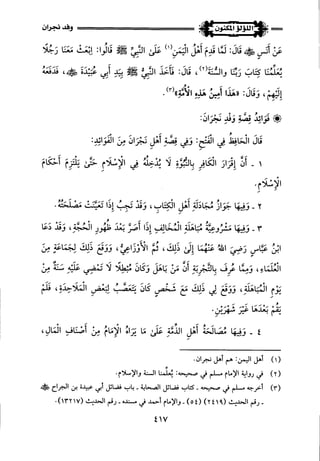 اللؤلؤ المكنون
وفد نجران
عَنْ أَنَسٍ ﷺ قَالَ: لَمَّا قَدِمَ أَهْلُ الْيَمَنِ(١) عَلَى النَّبِيِّ ﷺ قَالُوا: ابْعَثْ مَعَنَا رَجُلًا
يُعَلِّمُنَا كِتَابَ رَبِّنَا وَالسُّنَّةَ(٢)، قَالَ: فَأَخَذَ النَّبِيُّ ﷺ بِيَدِ أَبِي عُبَيْدَةَ ﷺ، فَدَفَعَهُ
إِلَيْهِمْ، وَقَالَ: «هَذَا أَمِينُ هَذِهِ الْأُمَّةِ»(٣).
* فَوَائِدُ قِصَّةِ وَفْدِ نَجْرَانَ:
قَالَ الْحَافِظُ فِي الْفَتْحِ: وَفِي قِصَّةِ أَهْلِ نَجْرَانَ مِنَ الْفَوَائِدِ:
١ - أَنَّ إِقْرَارَ الْكَافِرِ بِالنُّبُوَّةِ لَا يُدْخِلُهُ فِي الْإِسْلَامِ حَتَّى يَلْتَزِمَ أَحْكَامَ
الْإِسْلَامِ.
٢ - وَفِيهَا جَوَازُ مُجَادَلَةِ أَهْلِ الْكِتَابِ، وَقَدْ تَجِبُ إِذَا تَعَيَّنَتْ مَصْلَحَتُهُ.
٣ - وَفِيهَا مَشْرُوعِيَّةُ مُبَاهَلَةِ الْمُخَالِفِ إِذَا أَصَرَّ بَعْدَ ظُهُورِ الْحُجَّةِ، وَقَدْ دَعَا
ابْنُ عَبَّاسٍ رَضِيَ اللهُ عَنْهُمَا إِلَى ذَلِكَ، ثُمَّ الْأَوْزَاعِيُّ، وَوَقَعَ ذَلِكَ لِجَمَاعَةٍ مِنَ
الْعُلَمَاءِ، وَمِمَّا عُرِفَ بِالتَّجْرِبَةِ أَنَّ مَنْ بَاهَلَ وَكَانَ مُبْطِلًا لَا تَمْضِي عَلَيْهِ سَنَةٌ مِنْ
يَوْمِ الْمُبَاهَلَةِ، وَوَقَعَ لِي ذَلِكَ مَعَ شَخْصٍ كَانَ يَتَعَصَّبُ لِبَعْضِ الْمَلَاحِدَةِ، فَلَمْ
يَقُمْ بَعْدَهَا غَيْرَ شَهْرَيْنِ.
٤ - وَفِيهَا مُصَالَحَةُ أَهْلِ الذِّمَّةِ عَلَى مَا يَرَاهُ الْإِمَامُ مِنْ أَصْنَافِ الْمَالِ،
(١) أهل اليمن: هم أهل نجران.
(٢) في رواية الإمام مسلم في صحيحه: يُعلِّمنا السنة والإسلام.
(٣) أخرجه مسلم في صحيحه - كتاب فضائل الصحابة - باب فضائل أبي عبيدة بن الجراح ﷺ
- رقم الحديث (٢٤١٩) (٥٤) والإمام أحمد في مسنده - رقم الحديث (١٣٢١٧).
٤١٧